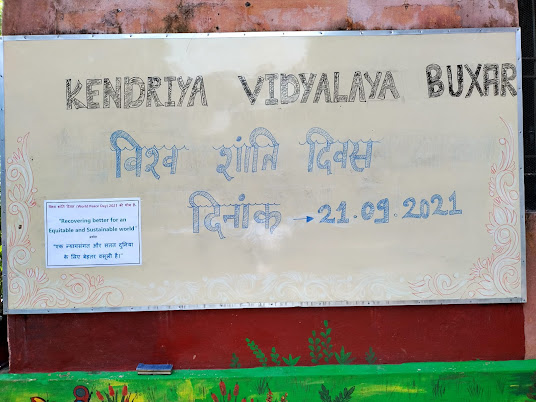 KENDRIYA VIDYALAYA BUXAR
विश्व शांति दिवस
दिनांक → 21.09.2021
विश्व शांति दिवस (World Peace Day) 2021 की थीम है-
"Recovering better for an
Equitable and Sustainable world"
अर्थात
"एक न्यायसंगत और सतत दुनिया
के लिए बेहतर वसूली है।"